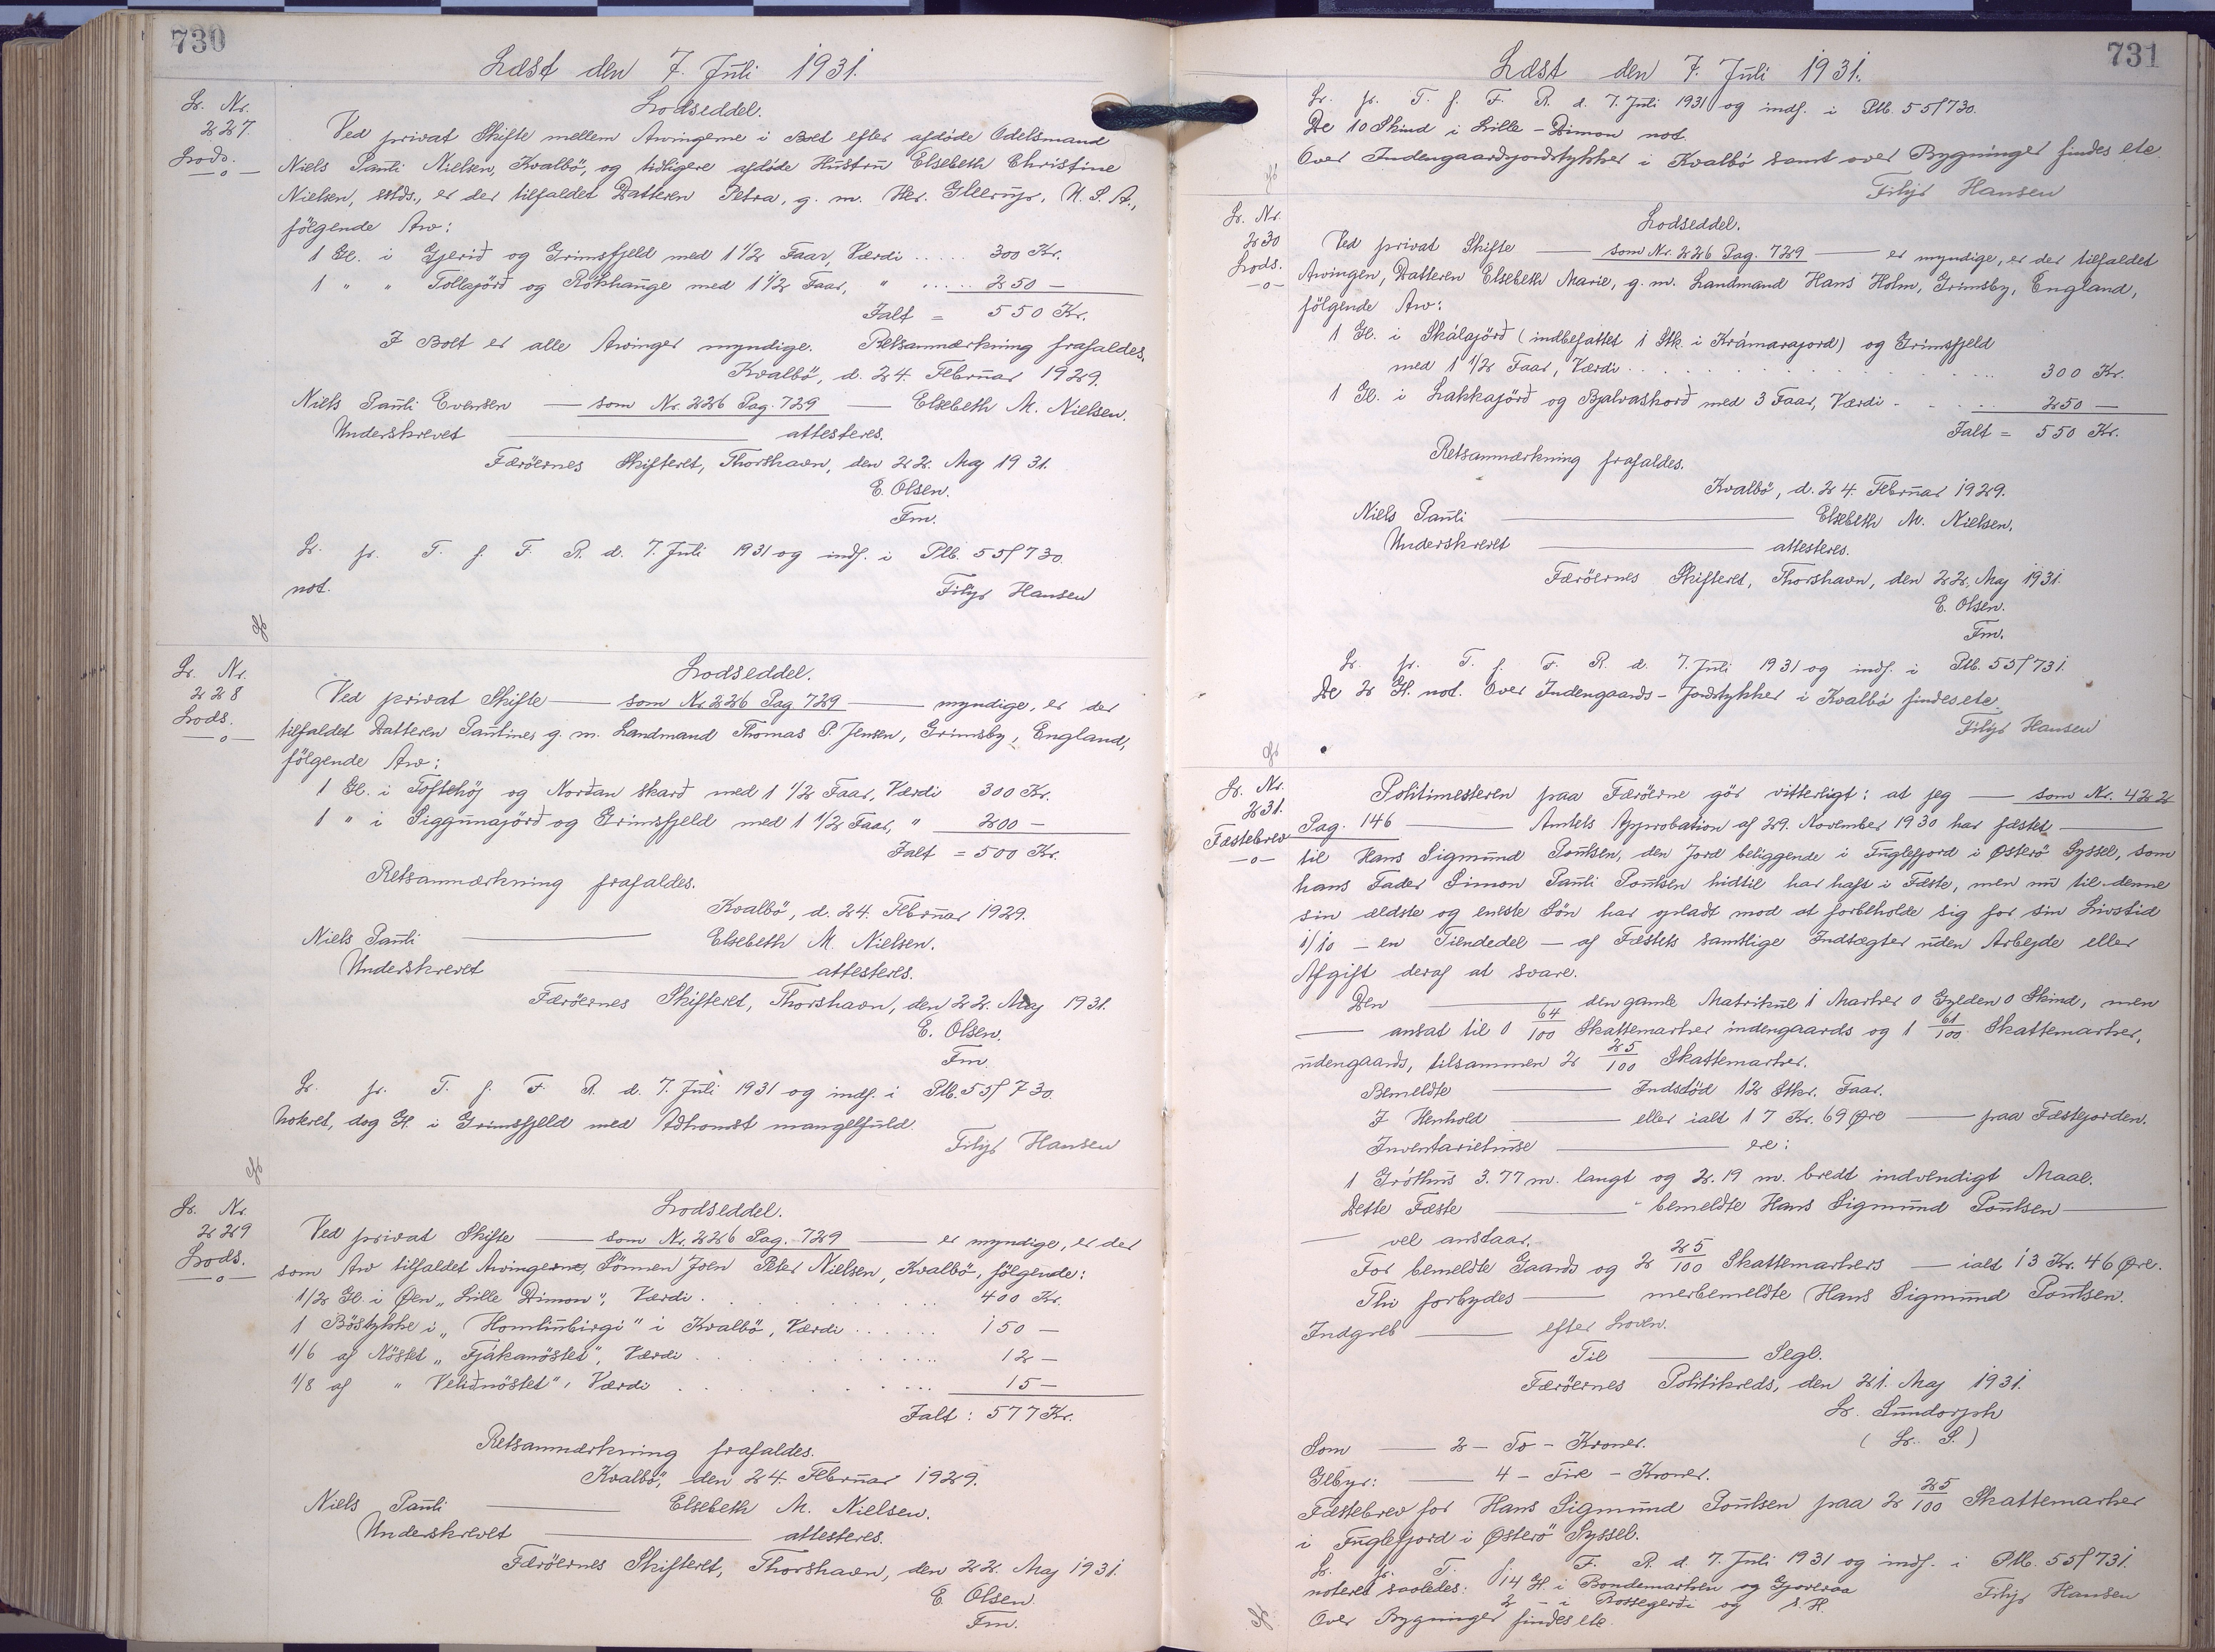 730
Læst den 7. Juli 1931.
Lr. Nr.
227.
Lods.
Lodseddel.
Ved privat Skifte mellem Arvingerne i Boet efter afdöde Odelsmand
Niels Pauli Nielsen, Kvalbö, og tidligere afdöde Hustru Elsebeth Christine
Nielsen, sstds., er der tilfaldet Datteren Petra, g. m. Her. Gleerup, U. S. A.,
fölgende Arv:
1 Gl. i Gjerið og Grimsfjeld med 1 1/2 Faar, Værdi ..... 300 Kr.
1 " " Tollajörð og Rókhauge med 1 1/2 Faar, " ..... 250 —
Ialt = 550 Kr.
I Boet er alle Arvinger myndige. Retsanmærkning frafaldes.
Kvalbö, d. 24. Februar 1929.
Niels Pauli Evensen — som Nr. 226 Pag. 729 — Elsebeth M. Nielsen.
Underskrevet — attesteres.
Færöernes Skifteret, Thorshavn, den 22. Maj 1931.
E. Olsen.
Fm.
Lr. fr. T. f. F. R. d. 7. Juli 1931 og indf. i Ptb. 55f 730.
not.
Filip Hansen
Lr. Nr.
228
Lods.
Lodseddel.
Ved privat Skifte — som Nr 226 Pag 729 — myndige, er der
tilfaldet Datteren Pautines g. m. Landmand Thomas P. Jensen, Grimsby, England,
fölgende Arv:
1 Gl. i Toftehöj og Norðan skarð med 1 1/2 Faar, Værdi 300 Kr.
1 " i Siggunajörð og Grimsfjeld med 1 1/2 Faar, " 200 —
Ialt = 500 Kr.
Retsanmærkning frafaldes.
Kvalbö, d. 24. Februar 1929.
Niels Pauli — Elsebeth M. Nielsen.
Underskrevet — attesteres.
Færöernes Skifteret, Thorshavn, den 22. Maj 1931.
E. Olsen.
Fm.
Lr. fr. T. f. F. R. d. 7. Juli 1931 og indf. i Ptb. 55f 730.
Noteret, dog Gl. i Grimsfjeld med Adkomst mangelfuld.
Filip Hansen
Lr. Nr.
229
Lods.
Lodseddel.
Ved privat Skifte — som Nr. 226 Pag. 729 — er myndige, er der
som Arv tilfaldet Arvingerne, Sönnen Joen Peter Nielsen, Kvalbö, fölgende:
1/2 Gl. i Øen „Lille Dimon", Værdi . . . 400 Kr.
1 Böstykke i „Homlinbirgi" i Kvalbö, Værdi ...... 150 —
1/6 af Nöstet „Fjákanöstet", Værdi . . . 12 —
1/8 af " Veliðnöstet", Værdi . . . 15 —
Ialt : 577 Kr.
Retsanmærkning frafaldes.
Kvalbö, den 24. Februar 1929.
Niels Pauli — Elsebeth M. Nielsen.
Underskrevet — attesteres.
Færöernes Skifteret, Thorshavn, den 22. Maj 1931.
E. Olsen.
Fm.
731
Læst den 7. Juli 1931.
Lr. fr. T. f. F. R. d. 7. Juli 1931 og indf. i Ptb. 55f 730.
De 10 Skind i Lille - Dimon not.
Over Indengaardsjordstykker i Kvalbö samt over Bygninger findes ete
Filip Hansen
Lr. Nr.
230
Lods.
Lodseddel.
Ved privat Skifte — som Nr. 226 Pag. 729 — er myndige, er der tilfaldet
Arvingen, Datteren Elsebeth Marie, g. m. Landmand Hans Holm, Grimsby, England,
fölgende Arv:
1 Gl. i Skálajörð (indbefattet 1 Stk. i Krámarajord) og Grimsfjeld
med 1 1/2 Faar, Værdi . . . 300 Kr.
1 Gl. i Lakkajörð og Bjalvaskorð med 3 Faar, Værdi . . . 250 —
Ialt = 550 Kr.
Retsanmærkning frafaldes.
Kvalbö, d. 24. Februar 1929.
Niels Pauli — Elsebeth M. Nielsen.
Underskrevet — attesteres.
Færöernes Skifteret, Thorshavn, den 22. Maj 1931.
E. Olsen.
Fm.
Lr. fr. T. f. F. R. d. 7. Juli 1931 og indf. i Ptb. 55f 731.
De 2 Gl. not. Over Indengaards-Jordstykker i Kvalbö findes ete.
Filip Hansen
Lr. Nr.
231.
Fæstebrev
Politimesteren paa Færöerne gör vitterligt: at jeg — som Nr. 422
Pag. 146 — Amtets Approbation af 29. November 1930 har fæstet —
til Hans Sigmund Poulsen, den Jord beliggende i Fuglefjord i Østerö Syssel, som
hans Fader Simon Pauli Poulsen hidtil har haft i Fæste, men nu til denne
sin ældste og eneste Sön har opladt mod at forbeholde sig for sin Livstid
1/10 — en Tiendedel — af Fæstets samtlige Indtægter uden Arbejde eller
Afgift deraf at svare.
Den — den gamle Matrikul 1 Marker 0 Gylden 0 Skind, men
— ansat til 0 64/100 Skattemarker indengaards og 1 61/100 Skattemarker,
udengaards, tilsammen 2 25/100 Skattemarker.
Bemeldte — Indstöd 12 Stkr. Faar.
I Henhold — eller ialt 17 Kr. 69 Øre — paa Fæstejorden.
Inventariehuse — ere:
1 Gróthus 3.77 m. langt og 2.19 m. bredt indvendigt Maal.
Dette Fæste — bemeldte Hans Sigmund Poulsen —
— vel anstaar.
For bemeldte Gaards og 2 25/100 Skattemarkers — ialt 13 Kr. 46 Øre.
Thi forbydes — merbemeldte Hans Sigmund Poulsen.
Indgreb — efter Loven.
Til — Segl.
Færöernes Politikreds, den 21. Maj 1931.
Lr. Sundorph
(Lr. S.)
Som — 2 - To - Kroner.
Glbyr: — 4 - Fire - Kroner.
Fæstebrev for Hans Sigmund Poulsen paa 2 25/100 Skattemarker
i Fuglefjord i Østerö Syssel.
Lr. fr. T. f. F. R. d. 7. Juli 1931 og indf. i Ptb. 55f 731.
noteret saaledes: 14 Gl. i Bondemarken og Gjoveraa
2 - i Rossegerði og s. H.
Filip Hansen
Over Bygninger findes ete.